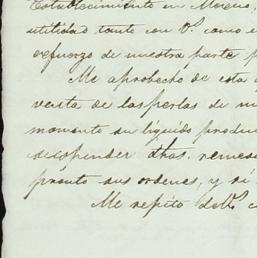 Establecimiento en Mexico,
utilidad tanto con V. como e
esfuerzo de nuestra parte p
Me aprobecho de esta
venta de las perlas de mi
momento su liquido produc
suspender dhas. remesa
pronto sus ordenes, y si
Me repito de V. c